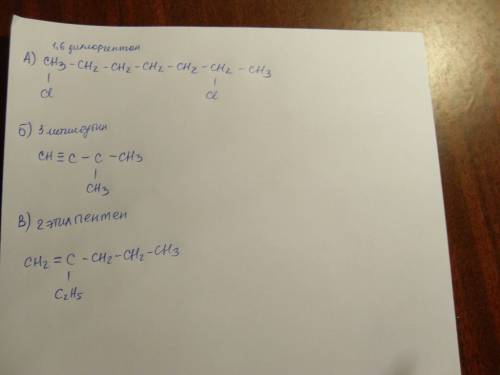 1,6 дихлоргептан
А) CH3 - CH2 - CH2 - CH2 - CH2 - CH2 - CH3
Cl Cl
Б) 3 метилбутин
CH ≡ C - C - CH3
CH3
В) 2 этилпентен
CH2 = C - CH2 - CH2 - CH3
C2H5